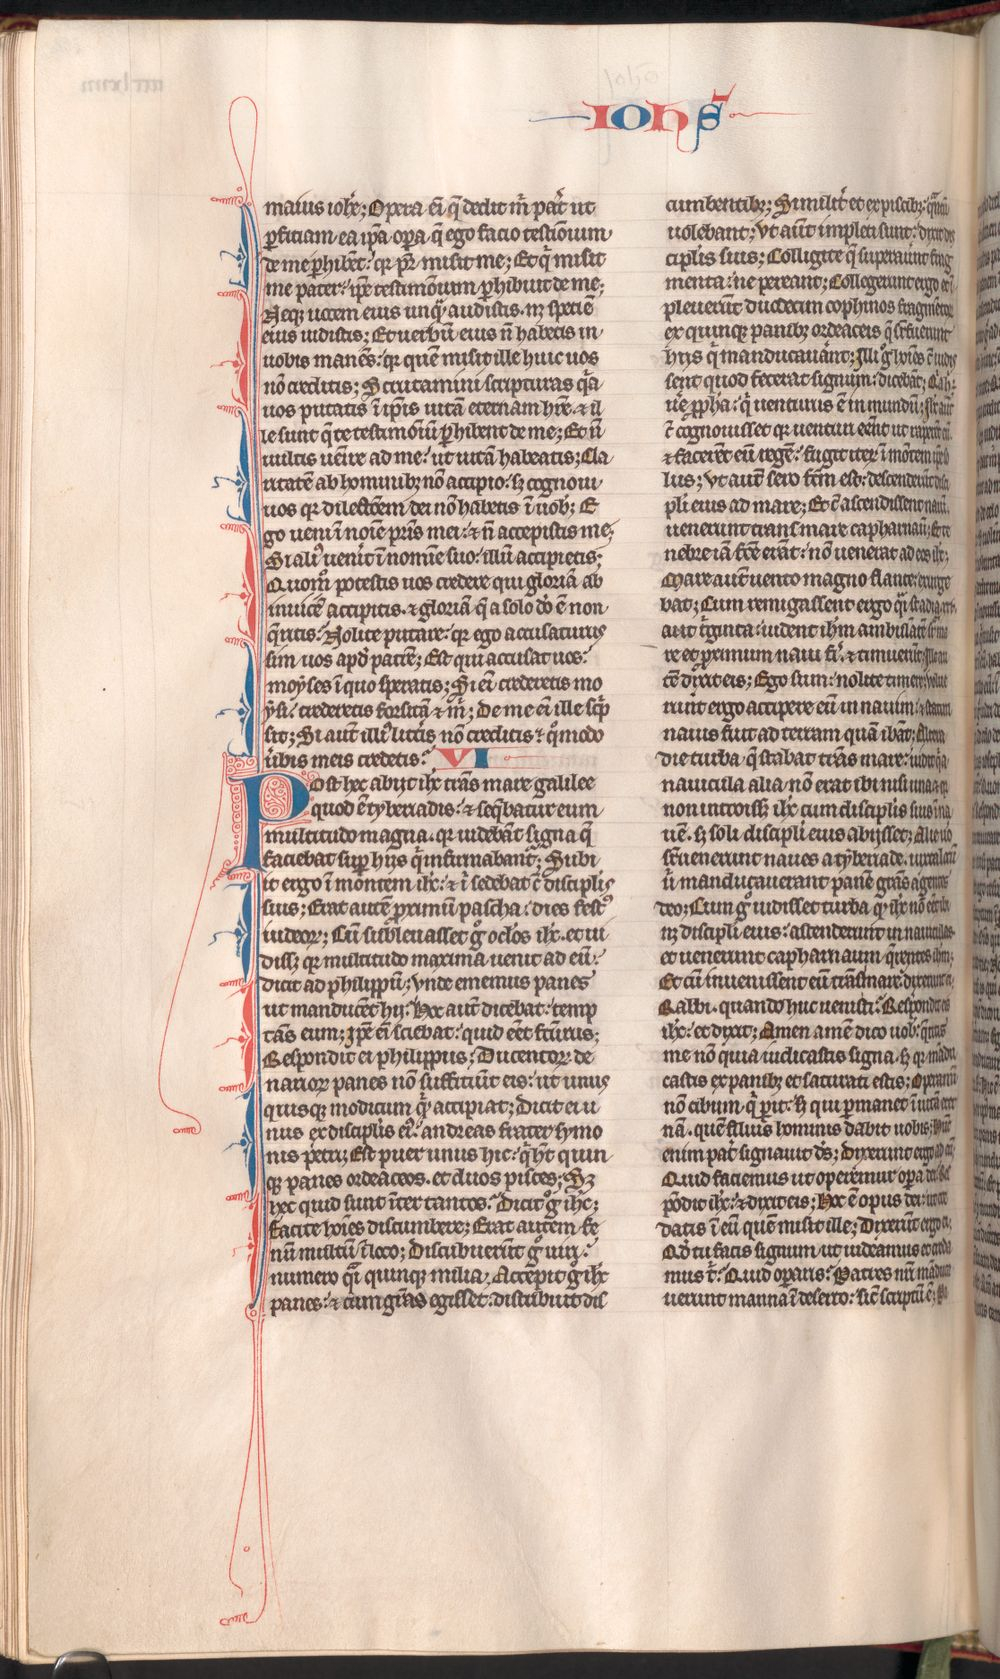 Iohs̄
maius ioh̄e; Opera ei q̄ dedit m̄ pat̄ ut
ꝑficiam ea ip̄a oꝑa q̄ ego facio testīoium
de me ꝑhibēt: qꝛ pr̄ misit me; Et q̄ misit
me pater: ip̄e testimōium ꝑhibuit de me;
Neqꝫ uocem eius unq̄ audistis. nꝫ speciē
eius uidistis; Et uerbū eius n̄ habetis in
uobis manēs: qꝛ quē misit ille huic uos
nō creditis; Scrutamini scripturas q̄a
uos putatis ī ip̄is uitā eternam hr̄e. ⁊ il
le sunt q̄ te testimōiū ꝑhibent de me; Et n̄
uultis uenire ad me: ut uitā habeatis; Cla
ritatē ab hominibꝫ nō accipio. sꝫ cognoui
uos qꝛ dilectōem dei nō habetis ī uob̄; E
go ueni ī noīe pr̄is mei: ⁊ n̄ accepistis me;
Si aliꝰ uenīt ī nomīe suo: illū accipietis;
Quom̊ potestis uos credere qui gloriā ab
inuicē accipitis. ⁊ gloriā q̄ a solo dō ē non
q̄ritis: Nolite putare: qꝛ ego accusaturꝰ
sim uos apd̄ patrē; Est qui accusat uos:
moyses ī quo speratis; Si eī crederetis mo
ysi: crederetis forsitā ⁊ m̄; De me ei ille scp̄
sit; Si aut illiꝰ lit̄is nō creditis: q̊modo
ūbis meis credetis: VI
Post hec abijt ih̄c trās mare galilee
quod ē tyberiadis: ⁊ seq̄batur eum
multitudo magna. qꝛ uidebāt signa q̄
faciebat suꝑ hijs q̄ infirmabant̄; Subi
it ergo ī montem ih̄c: ⁊ ī sedebat c̄ disciplis
suis; Erat autē ꝓximū pascha: dies festꝰ
iudeoꝝ; Cū subleuasset g̊ oclos ih̄c. et ui
diss̄ qꝛ multitudo maxima uenit ad eū:
dicit ad philippū; Vnde ememus panes
ut manducēt hij: Hoc aut dicebat: temp
tās eum; Ip̄e eī sciebat: quid eēt fctūrus;
Respondit ei philippus; Ducentoꝝ de
narioꝝ panes nō sufficiūt eis: ut unusꝰ
quisqꝫ modicum q̄ accipiat; Dicit ei u
nus ex disciplis eiꝰ: andreas frater symo
nis petri; Est puer unus hic: q̄ ht̄ quin
qꝫ panes ordeaceos. et duos pisces; Sꝫ
hec quid sunt īter tantos: Dicit g̊ ih̄c;
Facite hoīes discumbere; Erat autem fe
nū multū ī loco; Discubuerūt g̊ uiri:
numero q̄i quinqꝫ milia; Accepit g̊ ih̄c
panes: ⁊ cum gr̄as egisset: distribuit dis
cumbentibꝫ; Similit̄ et ex piscibꝫ: q̄ntū
uolebant; Vt aūt impleti sunt: dixit dis
ciplis suis; Colligite q̄ suꝑauūt frag
menta: ne pereant; Collegerunt ergo et ī
pleuerūt duodecim cophinos fragmētoꝝ
ex quinqꝫ panibꝫ ordeaceis q̄ sr̄fuerunt
hijs q̄ manducauāt; Illi g̊ hoīes c̄ uidis
sent quod fecerat signum: dicebāt; Q̄a h̄
ūe ꝓpha: q̄ uenturus ē in mundū; Ih̄c aut
c̄ cognouisset qꝛ uenturi eēnt ut raꝑēt eū
⁊ facerēt eū regē: fugit iteꝝ ī mōtem ip̄e so
lus; Vt aut sero fcm̄ est: descenderūt disci
pli eius ad mare; Et c̄ ascendissent nauī
uenerunt trans mare capharnaū; Et te
nebre iā fcē erāt: nō uenerat ad eos ih̄c;
Mare aut uento magno flante: exurge
bat; Cum remigassent ergo q̄i stadia
aut t̄ginta: uident ih̄m ambulātē sr̄ ma
re et ꝓximum naui fi: ⁊ timuerūt; Ille au
tē dixit eis; Ego sum: nolite timere; Volue
rūt ergo accipere eū in nauim: ⁊ statim
nauis fuit ad terram quā ibāt; Altera
die turba q̄ stabat trās mare: uidit q̄a
nauicula alia nō erat ibi nisi una: ⁊ qꝛ
non introiss̄ ih̄c cum disciplis suis ī na
uē. sꝫ soli discipli eius abijsset; Alie uo
sr̄uenerunt naues a tyberiade. iuxta locū
ū manducauerant panē gr̄as agentes
deo; Cum g̊ uidisset turba qꝛ ih̄c nō eēt ibi
nꝫ discipli eius: ascenderunt in nauiculas
et uenerunt capharnaum q̄rentes ih̄m;
Et cū inuenissent eū trās mare: dixerunt ei;
Rabbi. quando huc uenisti: Respondit eis
ih̄c: et dixit; Amen amē dico uob̄: q̄ritis
me nō quia uidistis signa. sꝫ qꝛ mādu
castis ex panibꝫ et saturati estis; Operamī
nō cibum q̄ ꝑit: sꝫ qui ꝑmanet ī uitā eter
nā. quē filius hominis dabit uobis; Hūc
enim pat̄ signauit ds̄; Dixerunt ergo ad eū;
Quid faciemus ut operemur oꝑa dei: Res
pōdit ih̄c: ⁊ dixit eis; Hoc ē opus dei: ut cre
datis ī eū quē misit ille; Dixerūt ergo ei;
Qd̄ tu facis signum: ut uideamus et creda
mus t̄: Quid operaris: Patres nr̄i mādu
uerunt manna ī deserto: sic̄ scriptū ē;